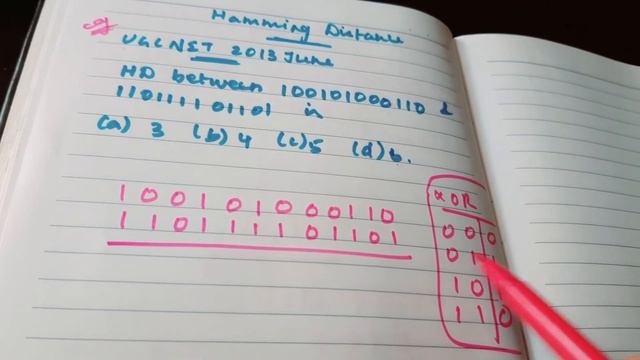 eg
Hamming Distance
UGC NET 2013 June
HD between 100101000110 &
110111101101 is
(a) 3 (b) 4 (c) 5 (d) 6.
1 0 0 1 0 1 0 0 0 1 1 0
1 1 0 1 1 1 1 0 1 1 0 1
XOR
0 0 0
0 1
1 0
1 1 0